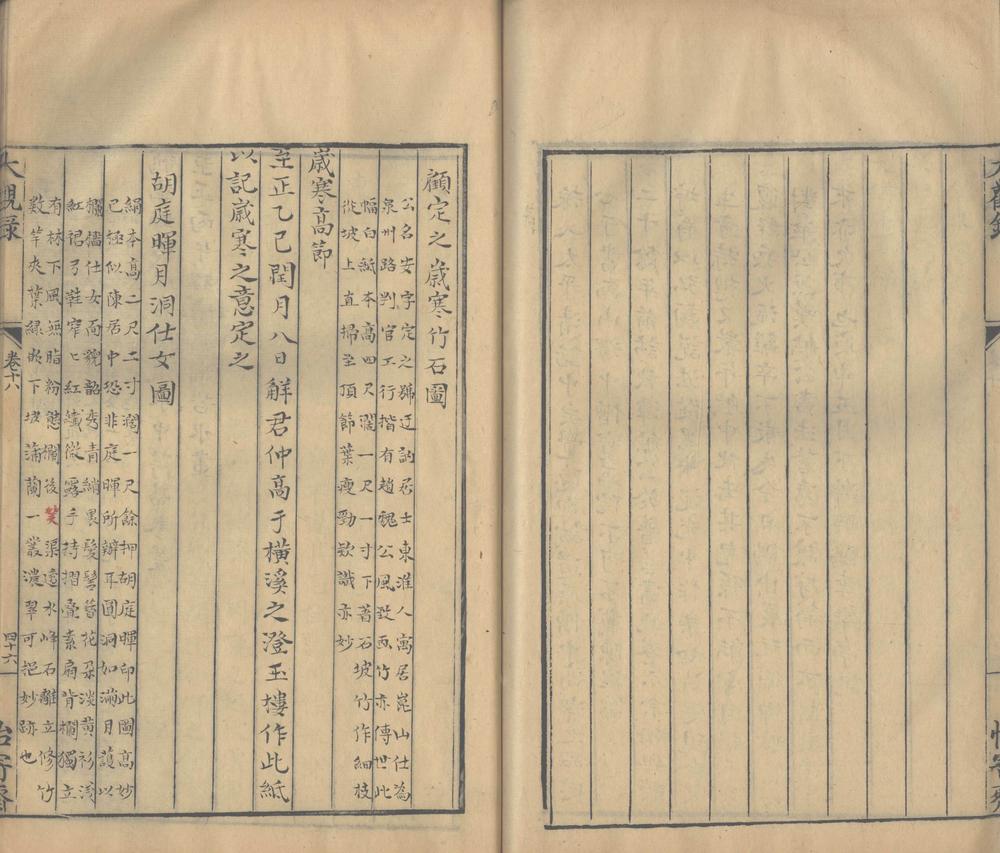 顧定之歲寒竹石圖
公名安字定之號迂訥居士東淮人寓居崑山仕為
泉州路判官工行楷有趙魏公風致画竹亦傳世此
幅白紙本高四尺濶一尺一寸下著石坡竹作細枝
從坡上直掃至頂節葉瘦勁欵識亦妙
歲寒高節
至正乙巳閏月八日觧君仲高于橫溪之澄玉樓作此紙
以記歲寒之意定之
胡庭暉月洞仕女圖
絹本高二尺二寸濶一尺餘押胡庭暉印此圖高妙
已極似陳居中恐非庭暉所辦耳圓洞如滿月護以
欄楯仕女面貌韶秀青綃裹髮髻簪花朶淡黃衫淺
紅裙弓鞋窄〻紅纖微露手持摺疊素扇背欄獨立
有林下風無脂粉態欄後笑渠遶水峰石離立修竹
數竿夾葉綠嵌下坡蒲蘭一叢濃翠可挹妙跡也
大觀錄
卷十八
四十六
怡寄齋